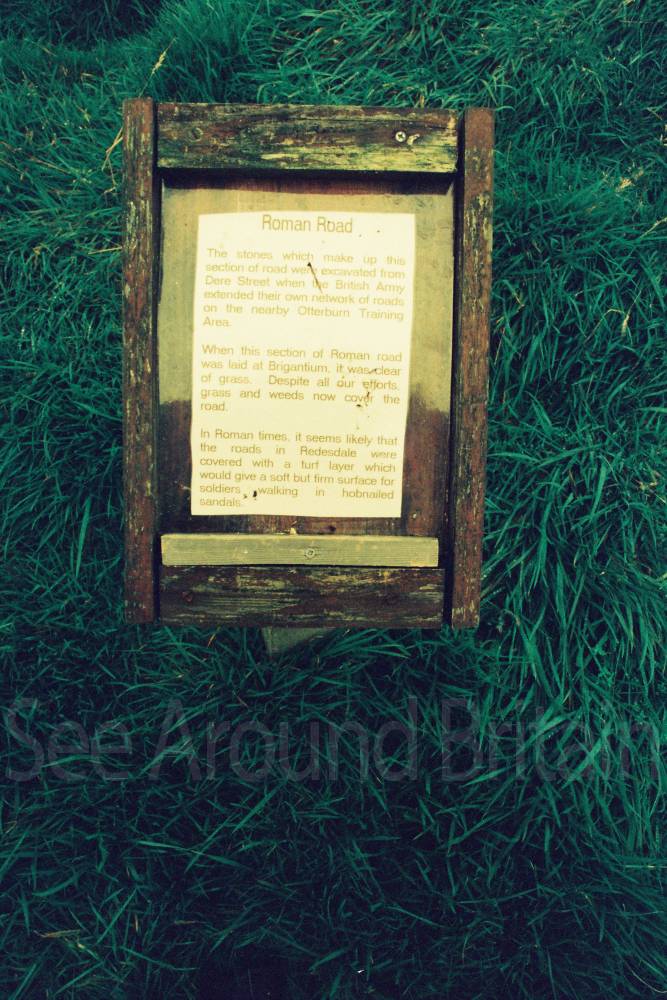 Roman Road
The stones which make up this
section of road were excavated from
Dere Street when the British Army
extended their own network of roads
on the nearby Otterburn Training
Area.
When this section of Roman road
was laid at Brigantium, it was clear
of grass. Despite all our efforts,
grass and weeds now cover the
road.
In Roman times, it seems likely that
the roads in Redesdale were
covered with a turf layer which
would give a soft but firm surface for
soldiers walking in hobnailed
sandals.
See Around Britain